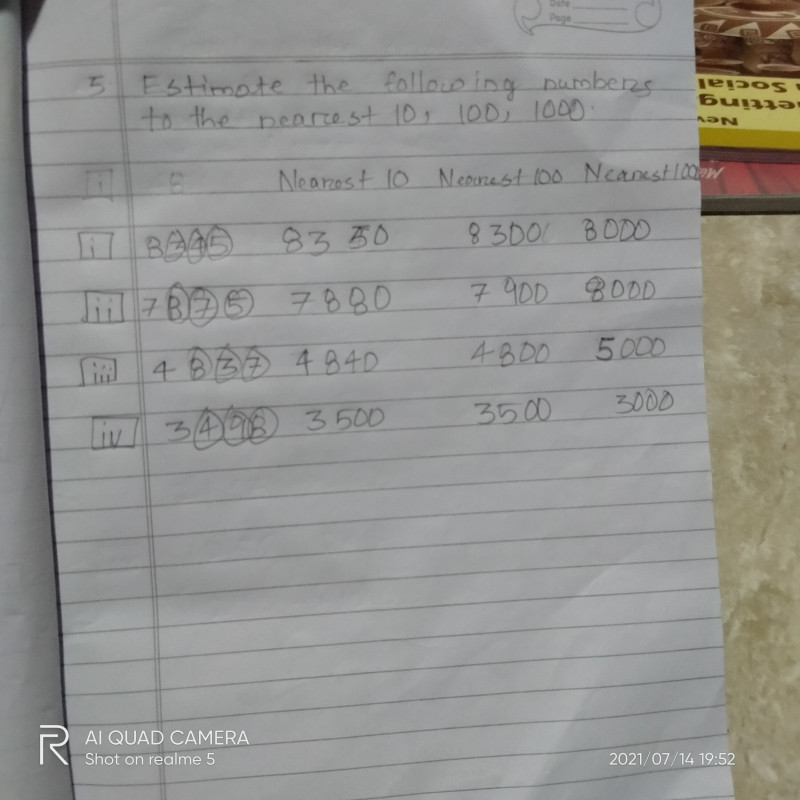 Date
Page
5 Estimate the following numbers
to the nearest 10, 100, 1000.
i 8 Nearest 10 Nearest 100 Nearest 1000
i 8345 8350 8300 8000
ii 7875 7880 7900 8000
iii 4837 4840 4800 5000
iv 3498 3500 3500 3000
New
etting
Social
AI QUAD CAMERA
Shot on realme 5
2021/07/14 19:52